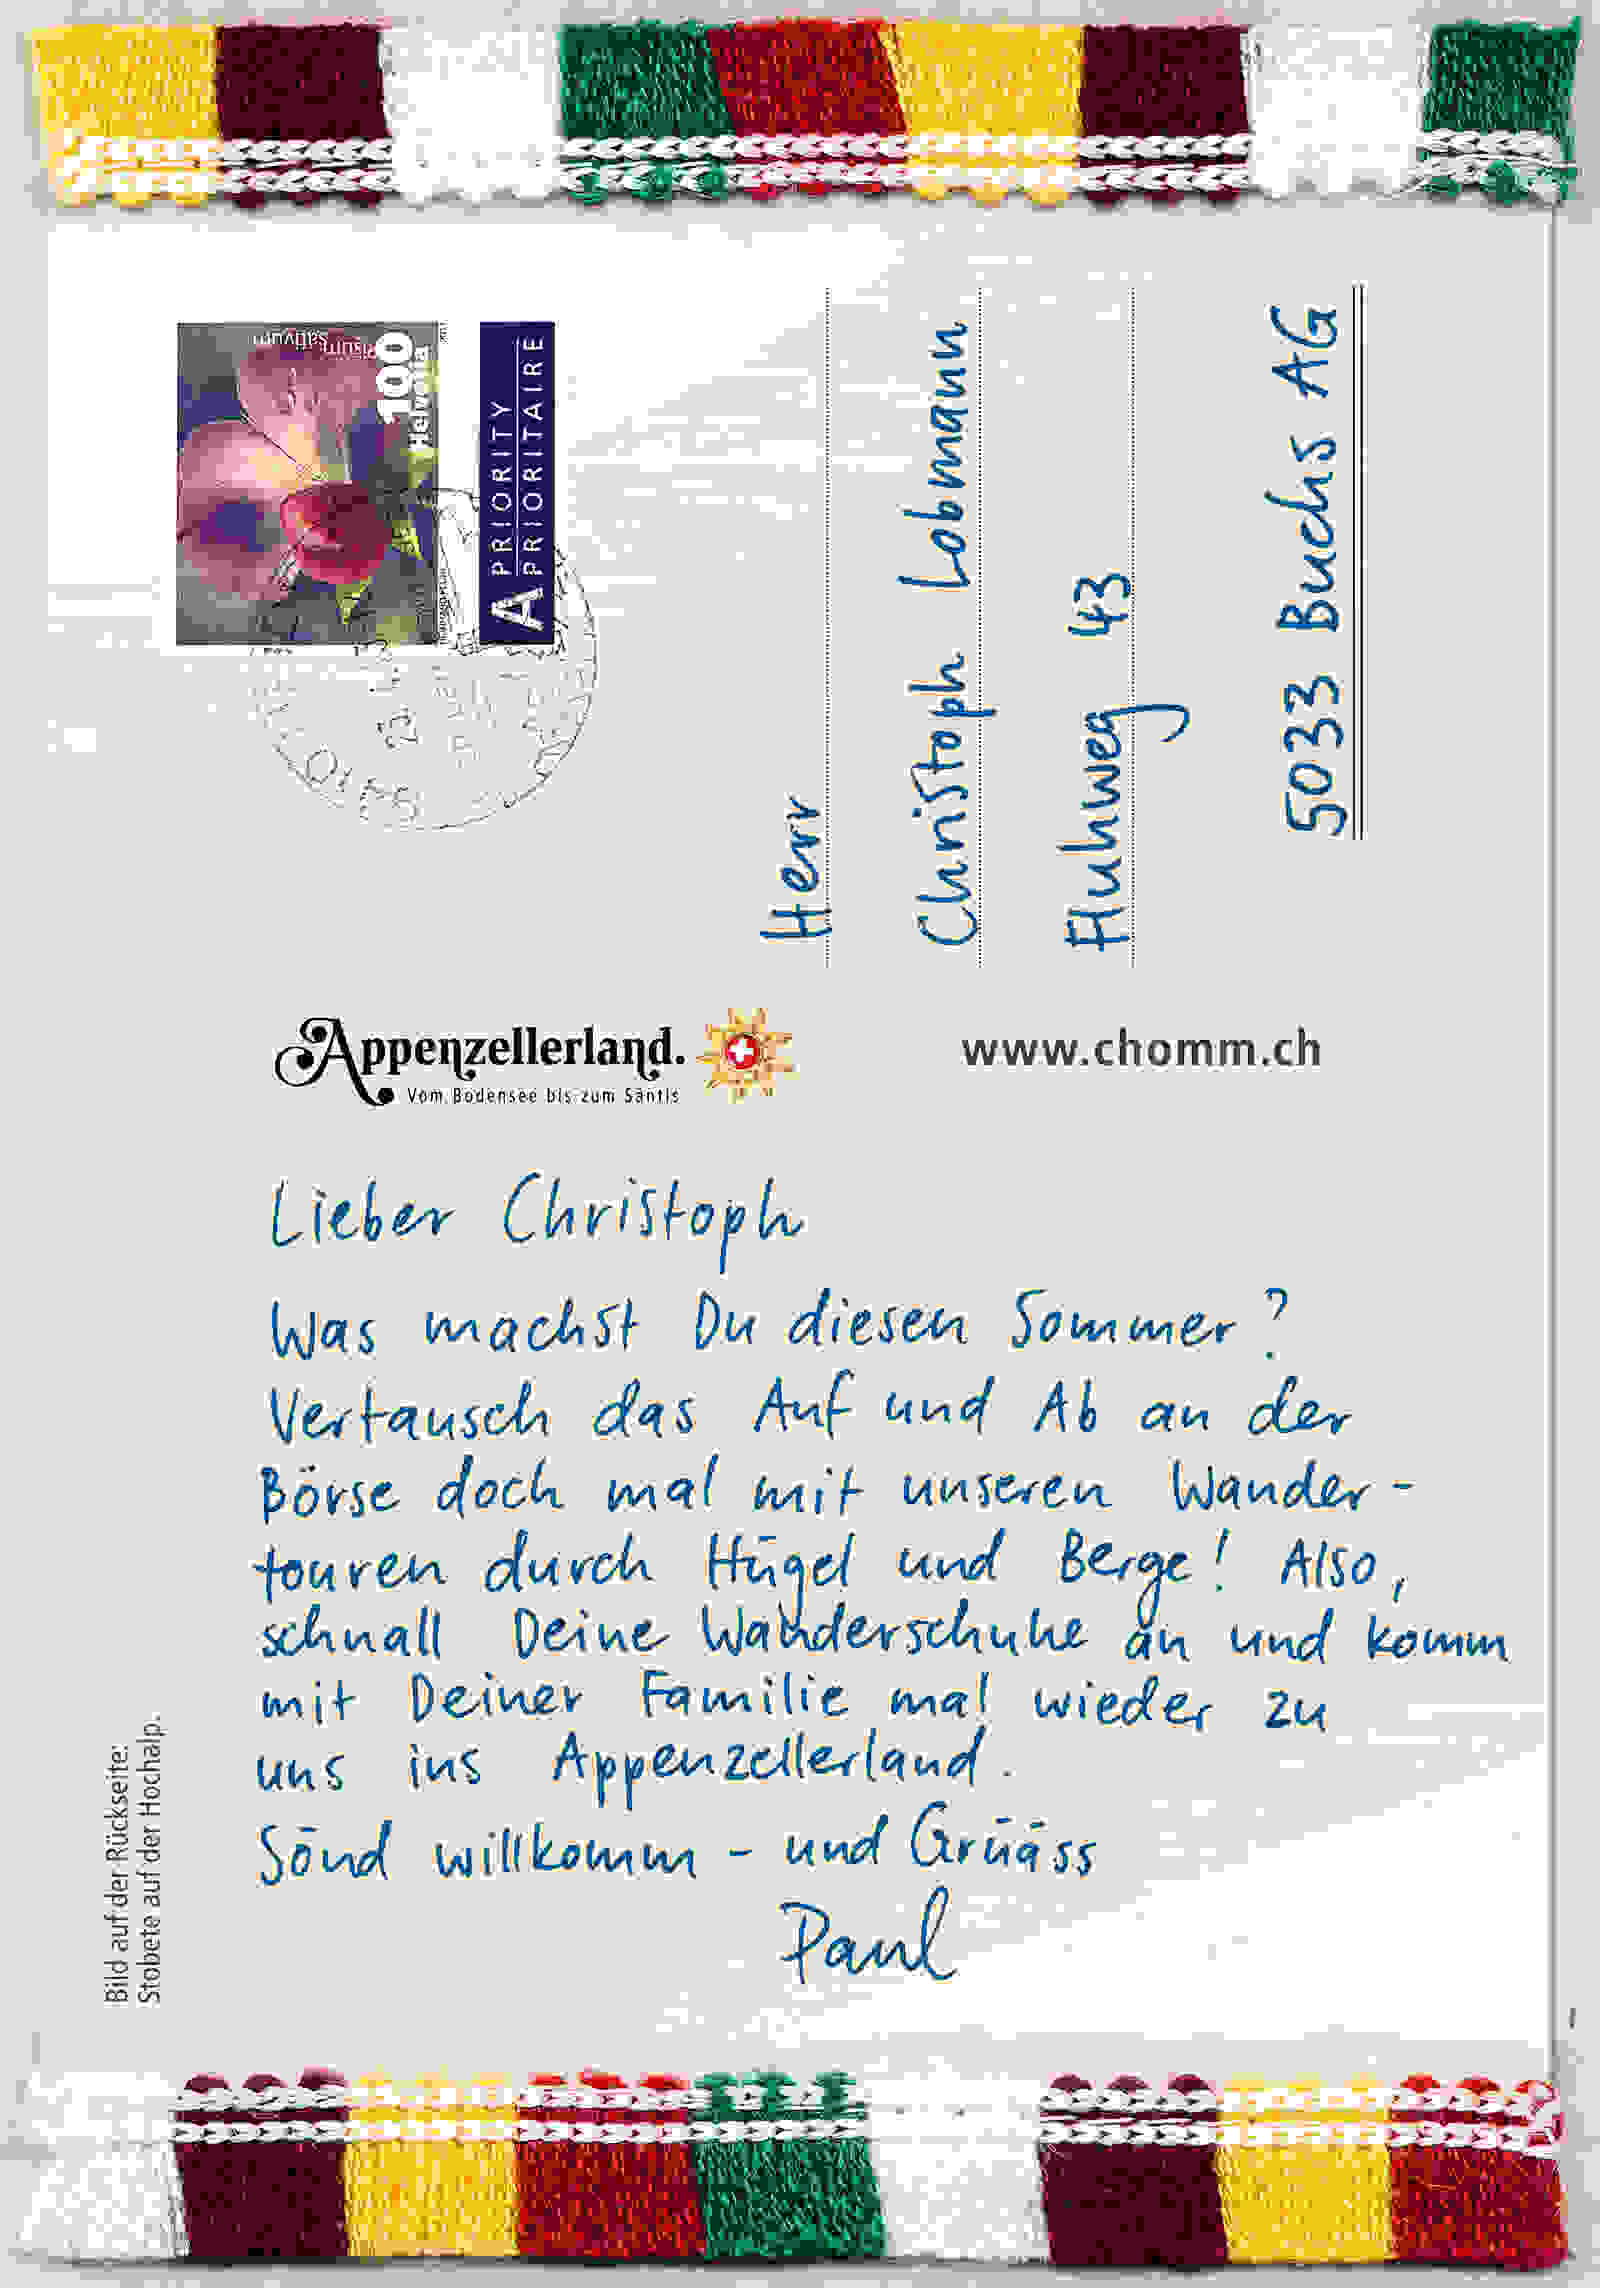 Pisum
sativum
100
Helvetia
A PRIORITY
PRIORITAIRE
Herr
Christoph Lobmann
Fluhweg 43
5033 Buchs AG
Appenzellerland.
Vom Bodensee bis zum Säntis
www.chomm.ch
Lieber Christoph
Was machst Du diesen Sommer?
Vertausch das Auf und Ab an der
Börse doch mal mit unseren Wander-
touren durch Hügel und Berge! Also,
schnall Deine Wanderschuhe an und komm
mit Deiner Familie mal wieder zu
uns ins Appenzellerland.
Sönd willkomm - und Grüäss
Paul
Bild auf der Rückseite:
Stobete auf der Hochalp.